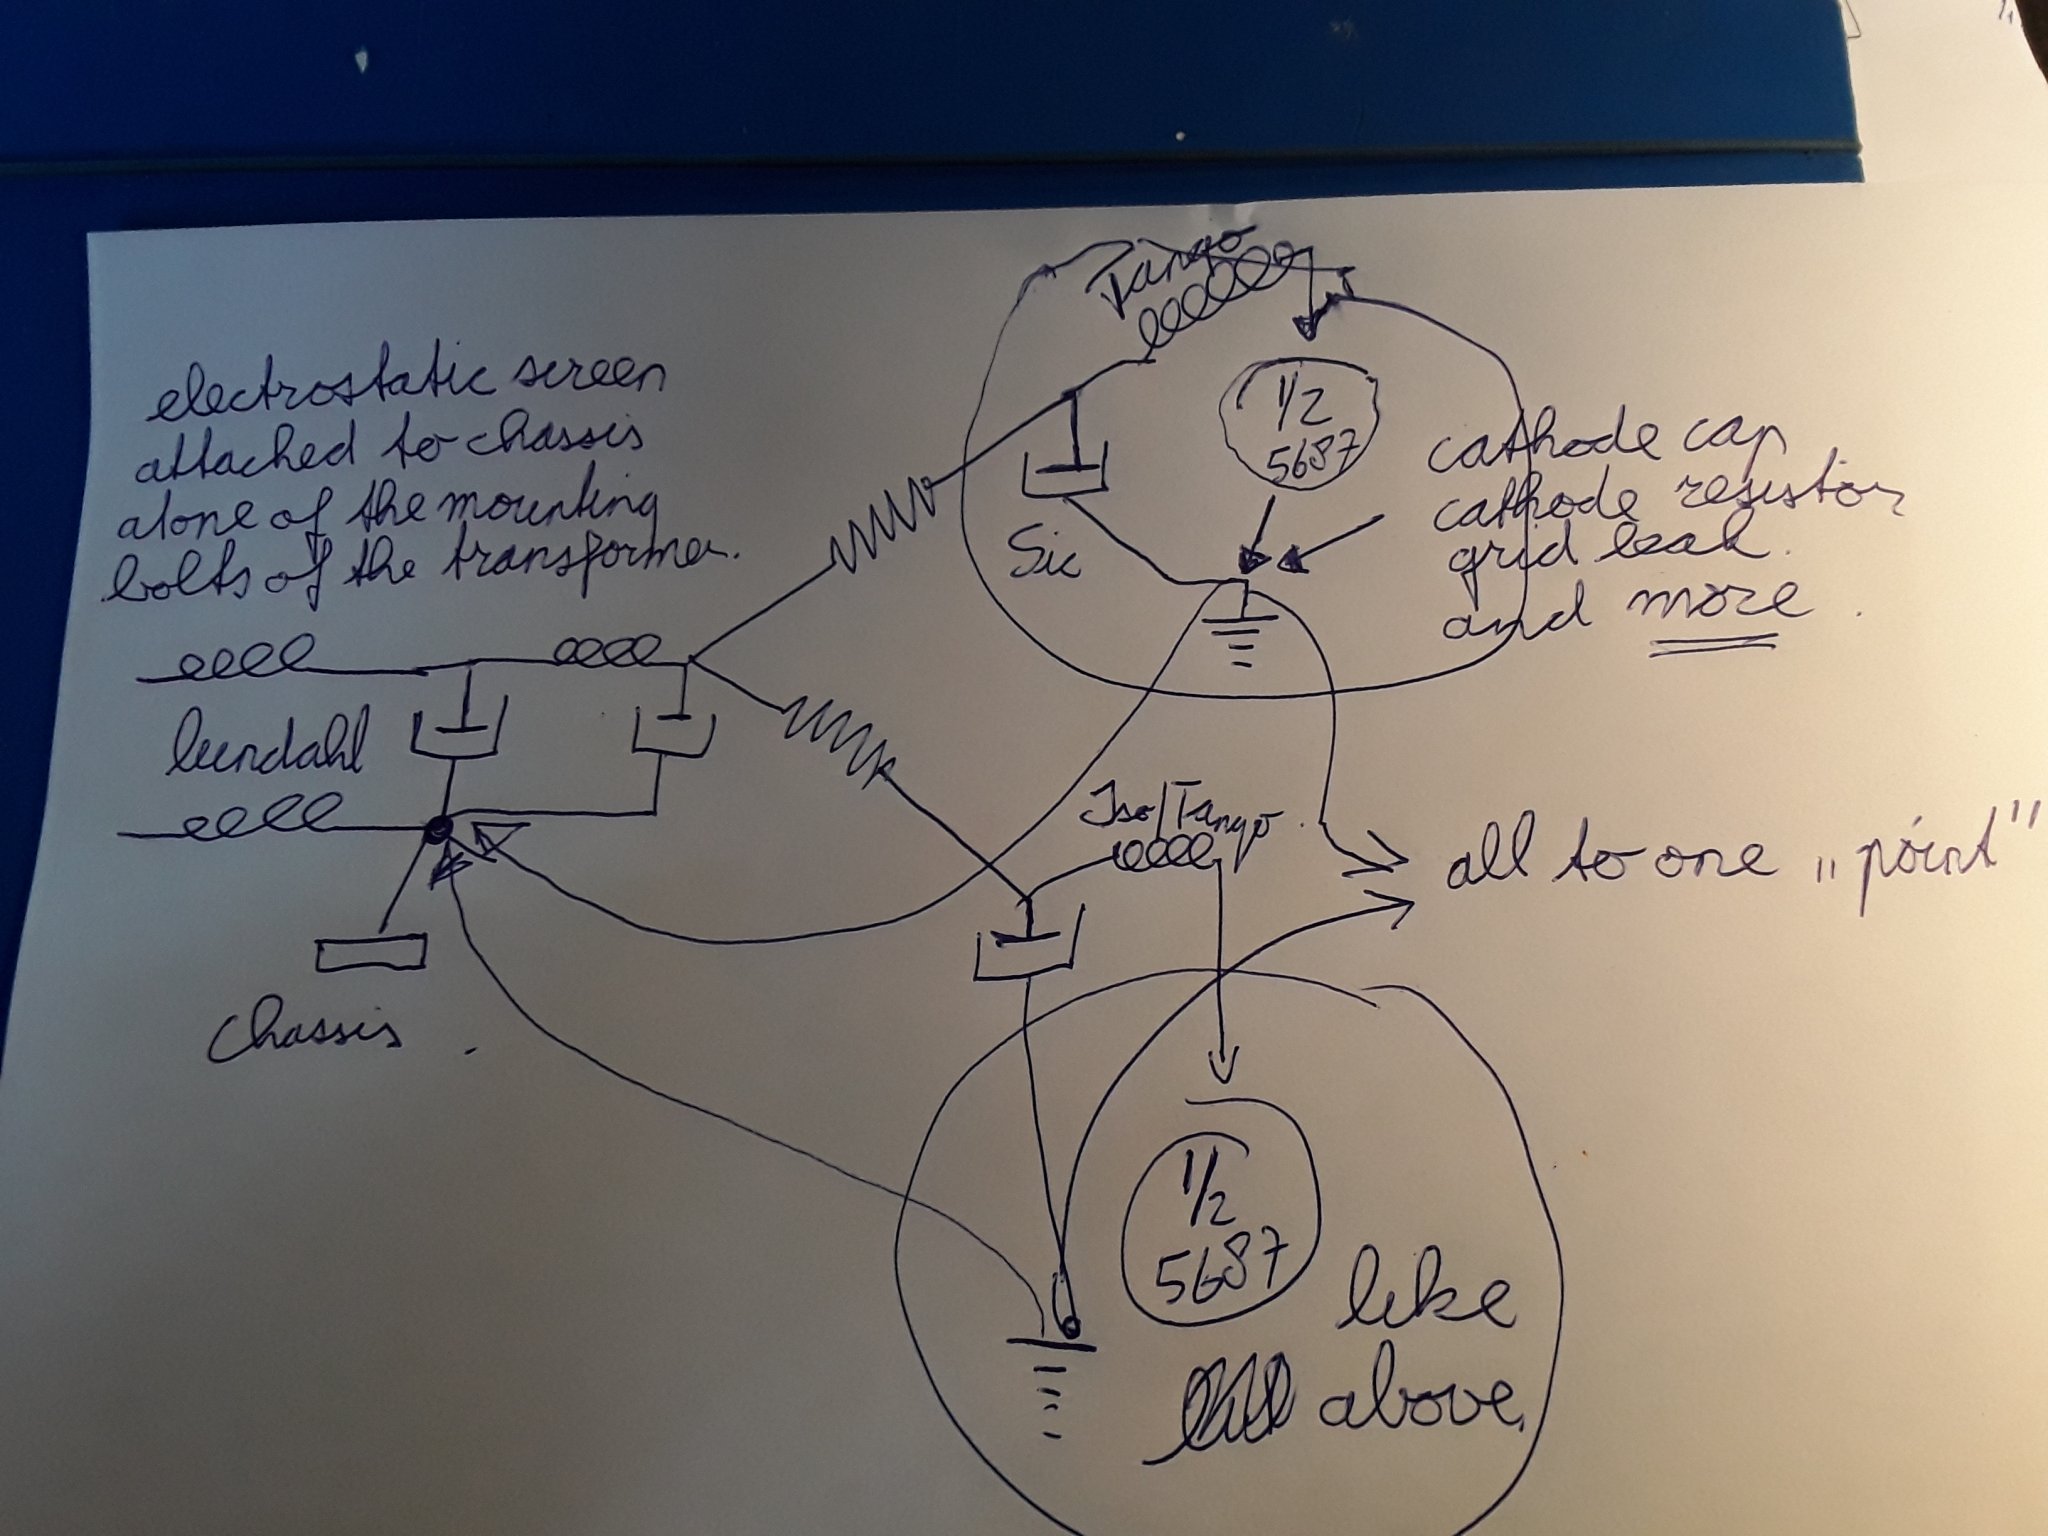 electrostatic screen
attached to chassis
alone of the mounting
bolts of the transformer.
Tango
1/2
5687
Sic
cathode cap
cathode resistor
grid leak.
and more.
lundahl
chassis.
Iso/Tango
all to one „point"
1/2
5687
like
above.